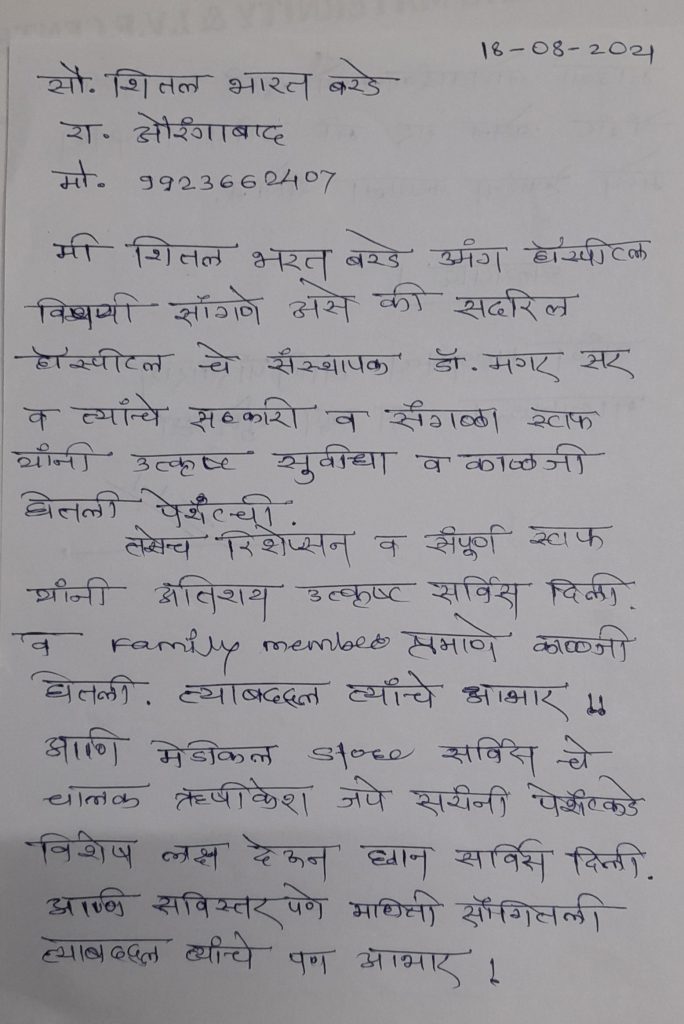 18-08-2021
सौ. शितल भारत बरडे
रा. औरंगाबाद
मो. 9923660407
मी शितल भरत बरडे अंग हॉस्पीटल
विषयी सांगणे असे की सदरिल
हॉस्पीटल चे संस्थापक डॉ. मगर सर
व त्यांचे सहकारी व सगळा स्टाफ
यांनी उत्कृष्ट सुवीधा व काळजी
घेतली पेशंटची.
तसेच रिशेप्सन व संपूर्ण स्टाफ
यांनी अतिशय उत्कृष्ट सर्विस दिली.
व Family member प्रमाणे काळजी
घेतली. त्याबद्दल त्यांचे आभार !!
आणि मेडीकल store सर्विस चे
चालक ऋषीकेश जपे सरांनी पेशंटकडे
विशेष लक्ष देऊन छान सर्विस दिली.
आणि सविस्तर पणे माहिती सांगितली
त्याबद्दल त्यांचे पण आभार !